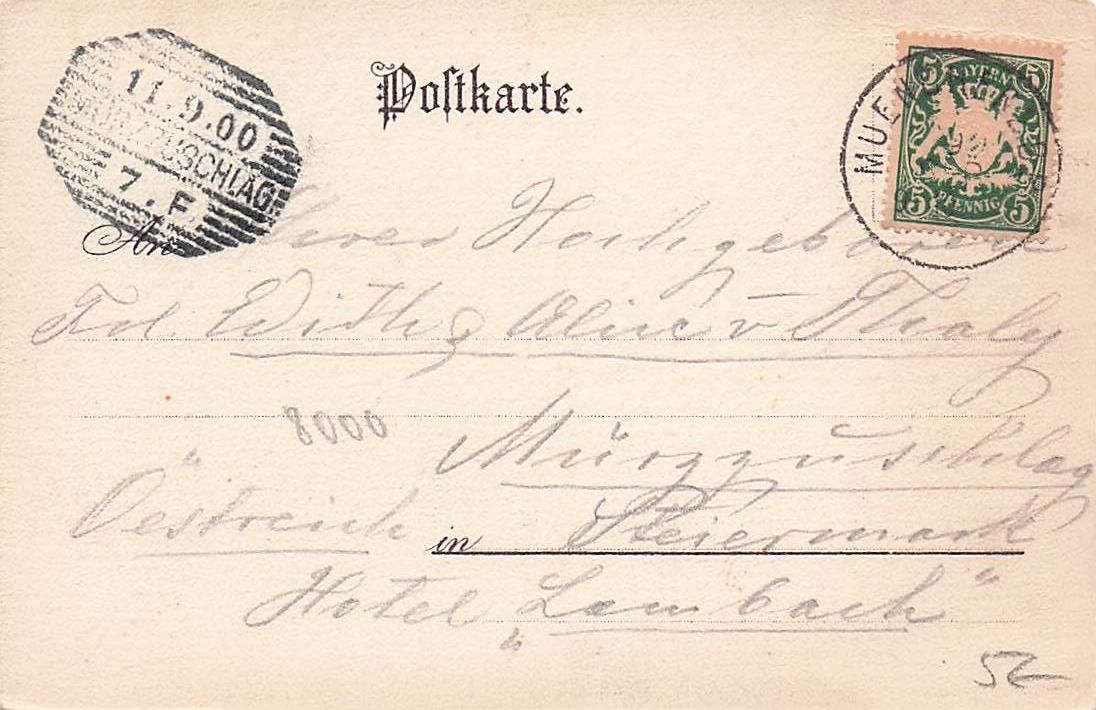 Postkarte.
11.9.00
MÜRZZUSCHLAG
7. F
BAYERN
5 5
5 PFENNIG 5
MUENCHEN
An Ihrer Hochgeboren
Frl. Edith & Aline v Thaly
8000
Mürzzuschlag
Oestreich in Steiermark
Hotel „Lambach“
5€